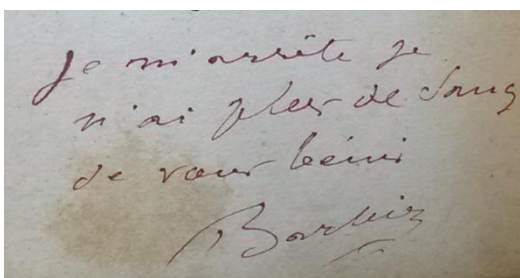 Je m'arrête je
n'ai plus de sang
de vous bénir
Barbier